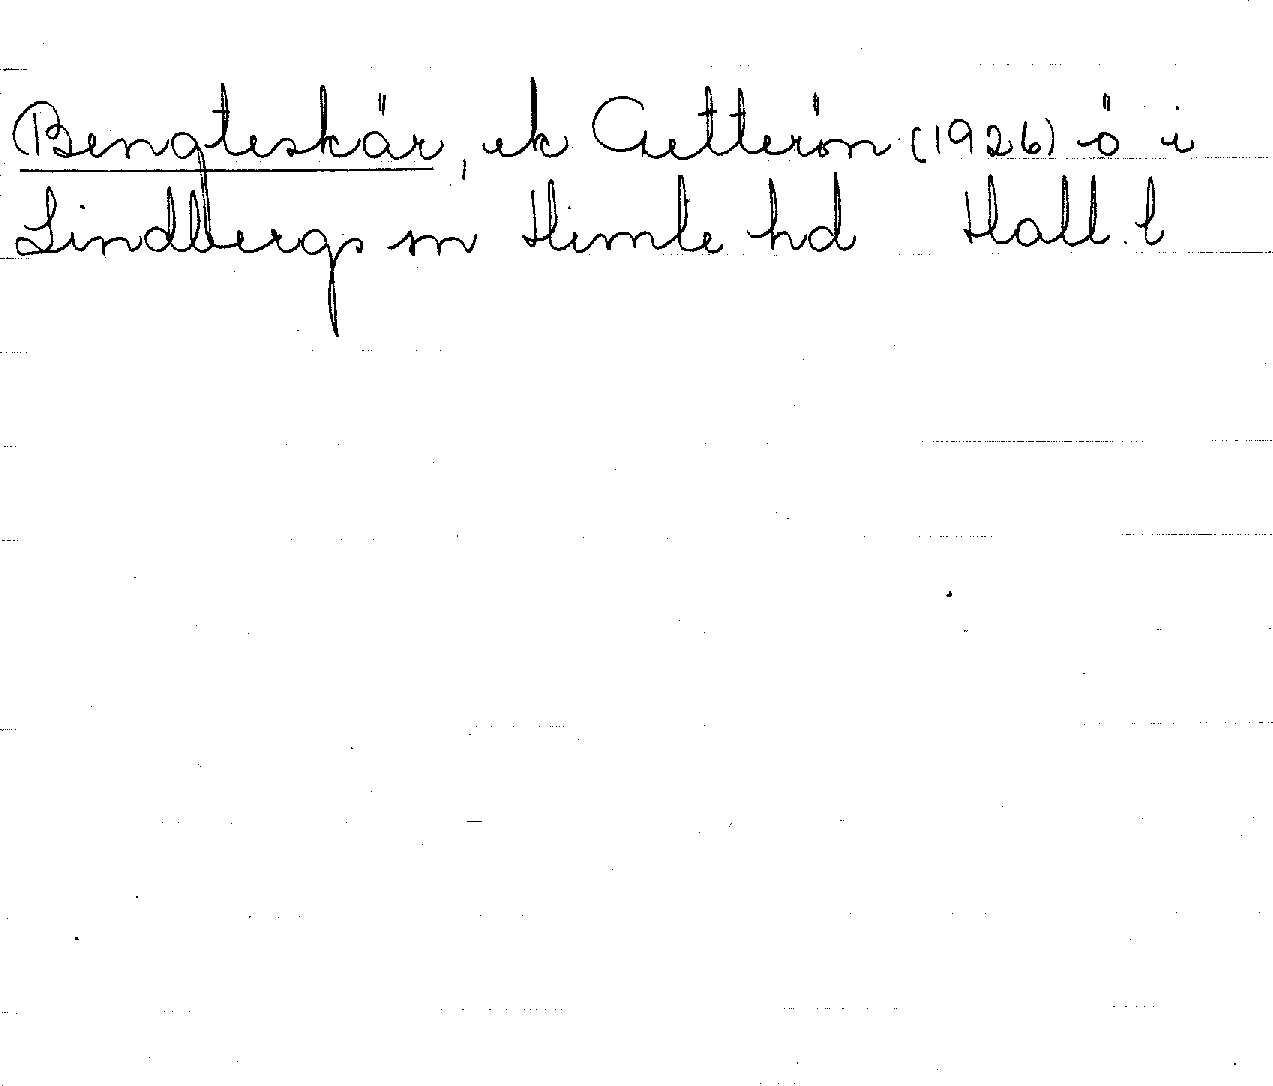 Bengteskär, ek Getterön (1926) ö i
Lindbergs sn Himle hd Hall. l